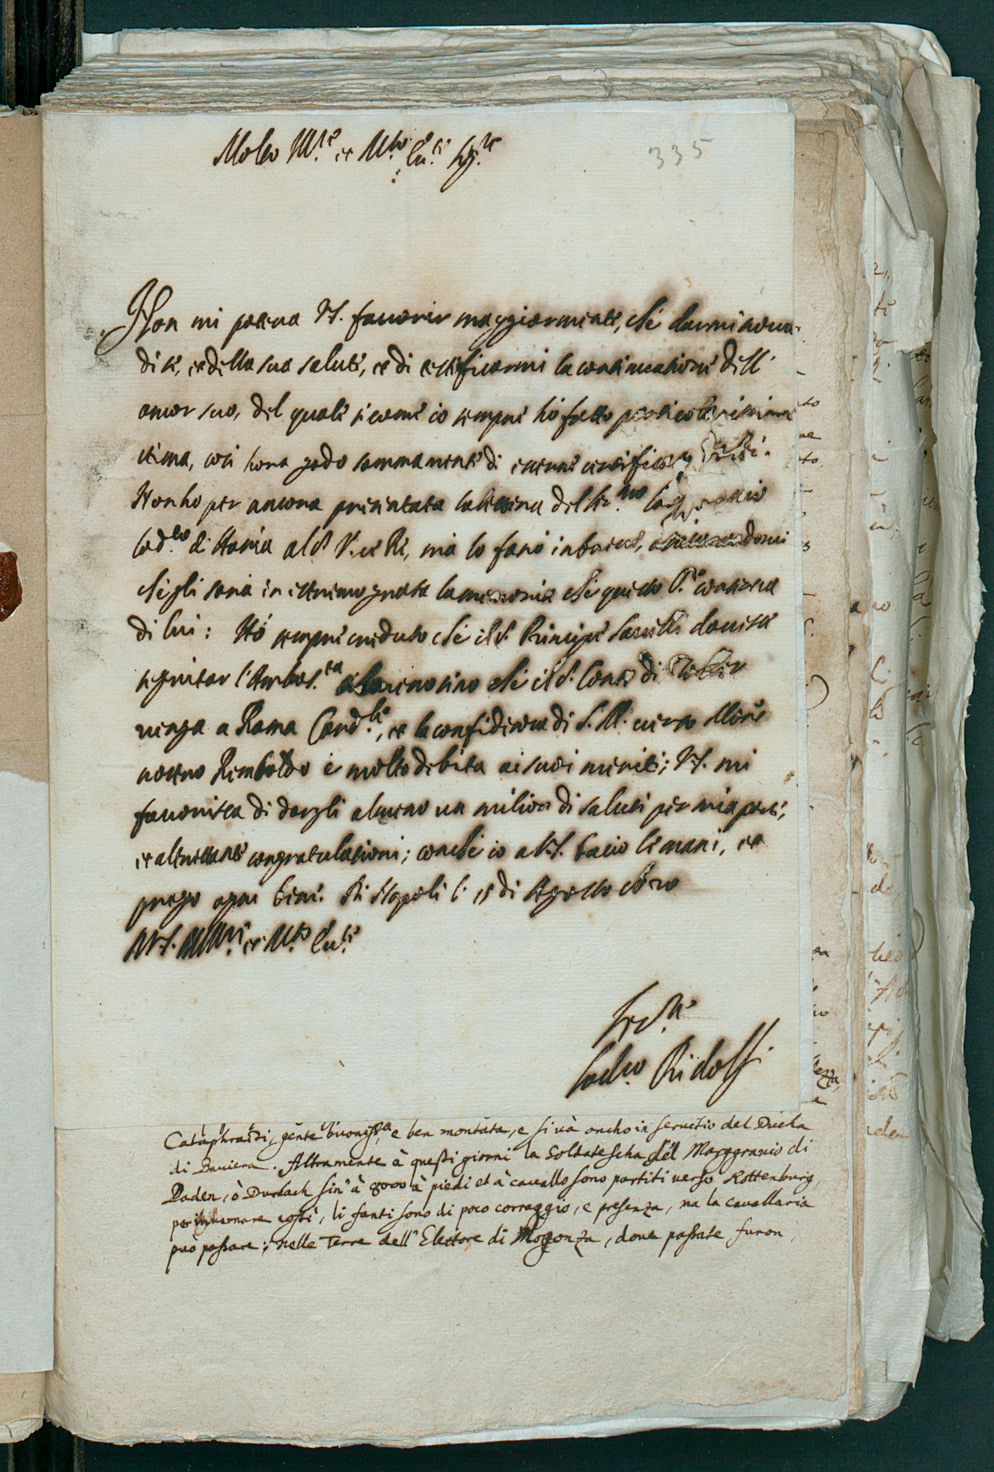 Molto Ill.re et M.to Ecc.te Sig.re
335
Non mi poteva V.S. favorir maggiormente, che darmi nova
di sé, et della sua salute, et di certificarmi la continuatione dell'
amor suo, del quale sicome io sempre hò fatto particolarissima
stima, così hora godo sommamente di esserne
Non ho per ancora presentata la lettera del
di Storia al S.r V. ce Rè, ma lo farò in breve,
che gli sarà in estremo grata la memoria che questo P.e conserva
di lui: Hò sempre creduto che il S.r Principe Savelli dovesse
seguitar l'Ambas.ta almeno sino che il S.r Conte di
venga a Roma Card.le, et la confidenza di S. M. verso Mons.re
nostro Rimboldo è molto debita ai suoi meriti; V.S. mi
favorisca di dargli almeno un milion di saluti per mia parte,
et altrettante congratulationi; con che io a V.S. bacio le mani, et
prego ogni bene. Di Napoli li 15 di Agosto 1620
Di V.S. Molto Ill.re et M.to Ecc.te
Ser.re
Lod.co Ridolfi
Cataphratti, gente buoniss.a e ben montata, e si và anche in servitio del Duca
di Baviera. Altramente à questi giorni la Soldatescha del Marggravio di
Baden, ò Durlach sin' à 8000 à piedi et à cavallo sono partiti verso Rottenburg,
per invernare costì, li fanti sono di poco corraggio, e presenza, ma la cavallaria
può passare; nelle Terre dell' Elettore di Mogonza, dove passate furon